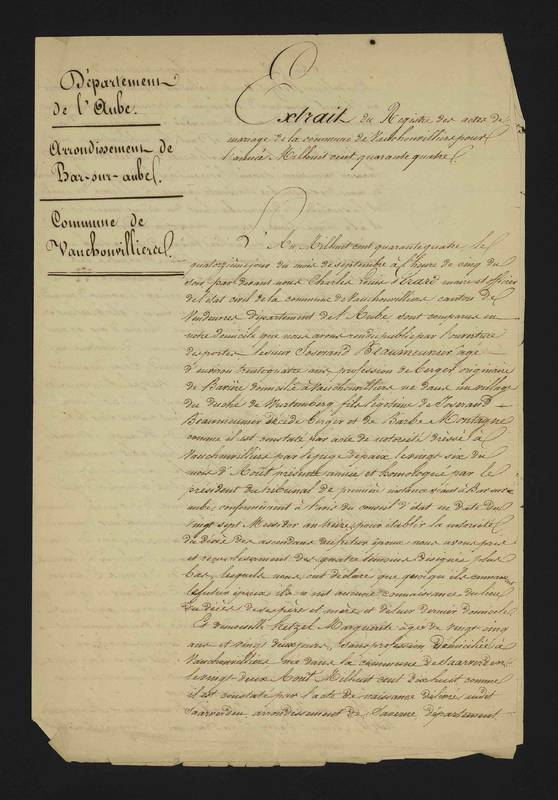 Département
de l'Aube.
Arrondissement de
Bar-sur-aube.
Commune de
Vauchonvilliers.
Extrait du Registre des actes de
mariage de la commune de Vauchonvilliers pour
l'année Milhuit cent quarante quatre.
L'An Milhuit cent quarante quatre le
quatorzième jour du mois de septembre à l'heure de cinq du
soir par devant nous Charles Louis maire et officier
de l'état civil de la commune de Vauchonvilliers canton de
Vendeuvre département de l'Aube sont comparus en
notre domicile que nous avons rendu public par l'ouverture
des portes le sieur Joserand Beaumeunier âgé
d'environ trente quatre ans profession de berger originaire
de Bavière domicilié à Vauchonvilliers né dans un village
du duché de Wurtemberg fils légitime de Joserand
Beaumeunier décédé berger et de Barbe Montagne
comme il est constaté par acte de notoriété dressé à
Vauchonvilliers par le juge de paix le vingt six du
mois d'Août présente année et homologué par le
président du tribunal de première instance séant à Bar-sur-
aube, conformément à l'avis du conseil d'état en date du
vingt sept Messidor an treize, pour établir la notoriété
du décès des ascendans du futur époux nous avons pris
et recu le serment des quatre témoins désignés plus
bas, lesquels nous ont déclaré que quoiqu'ils connaissent
le futur époux ils n'ont aucune connaissance du lieu
du décès de ses père et mère, et de leur dernier domicile.
Et demoiselle Hetzel Marguerite âgée de vingt cinq
ans et vingt deux jours, sans profession domiciliée à
Vauchonvilliers née dans la commune de Saarverden
le vingt deux Août Milhuit cent dix huit comme
il est constaté par l'acte de naissance délivré audit
Saarverden, arrondissement de Saverne département